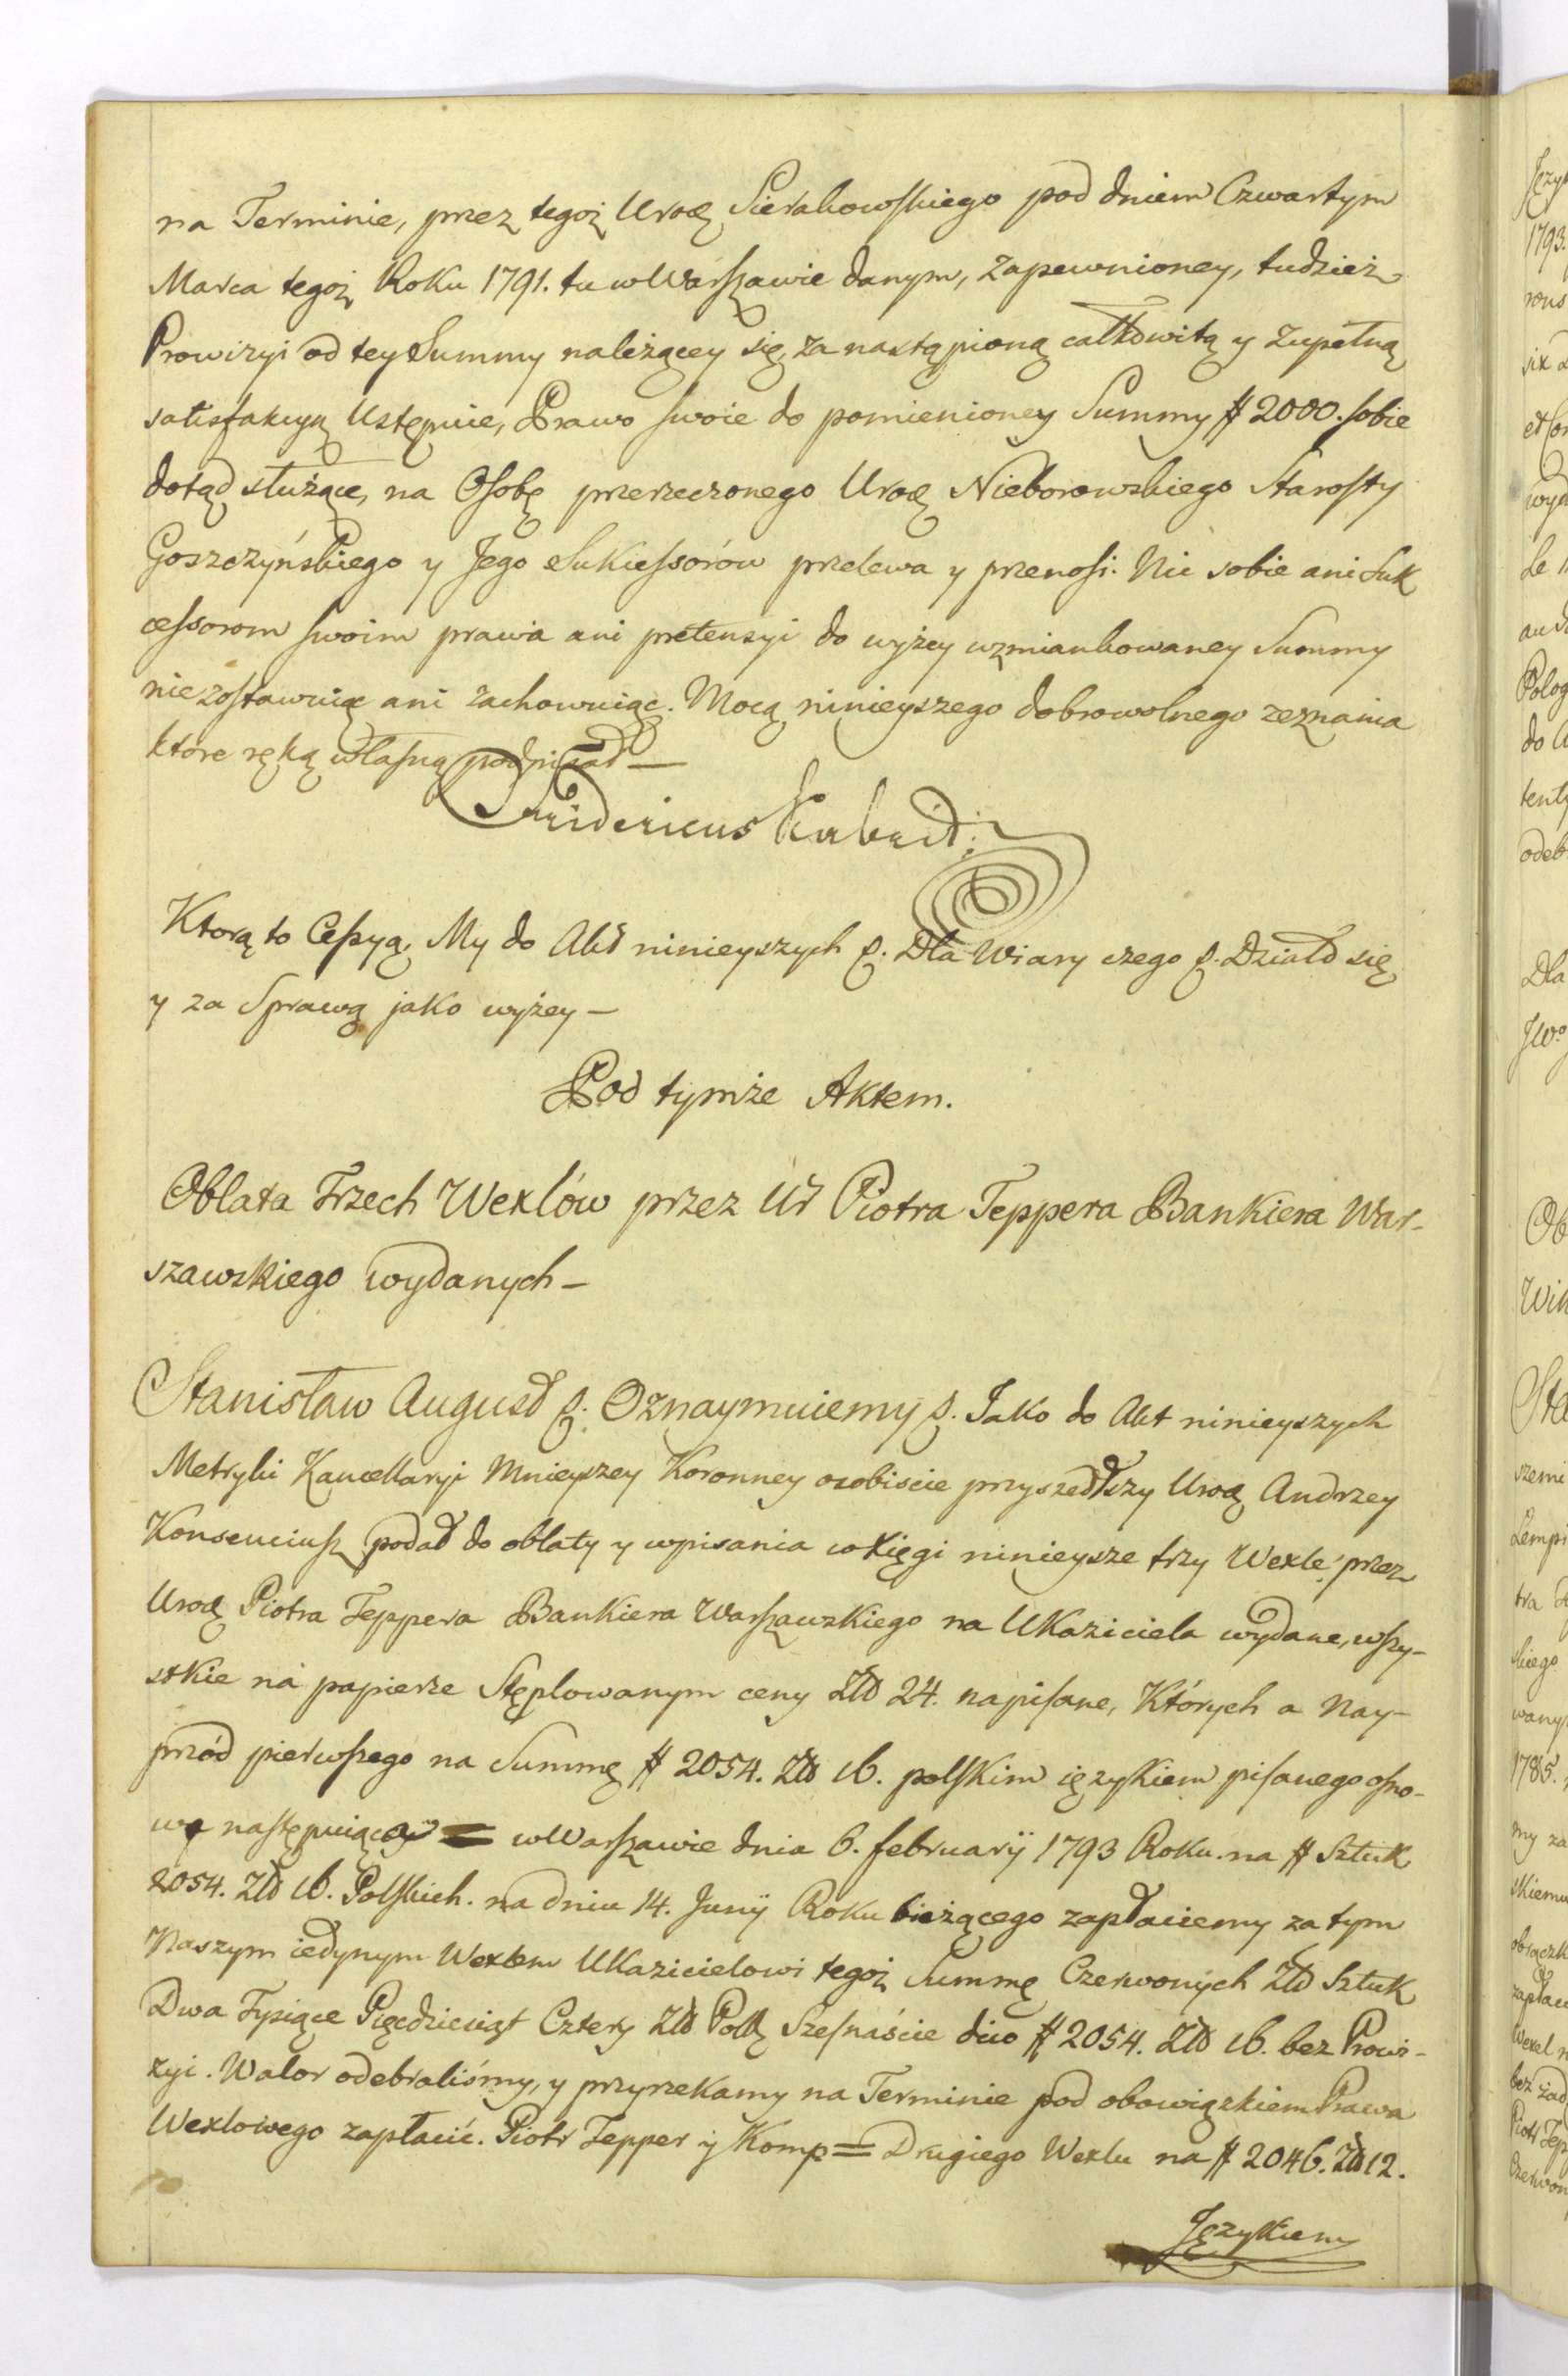 na Terminie, przez tegoż Urodz Sierakowskiego pod dniem Czwartym
Marca tegoż Roku 1791. tu w Warszawie danym, zapewnioney, tudzież
Prowizyi od tey Summy należącey się, za nastąpioną całkowitą y zupełną
satisfakcyą ustępuie, Prawo swoie do pomienioney Summy # 2000. sobie
dotąd służące, na Osobę przerzeczonego Urodz Nieborowskiego Starosty
Goszczyńskiego y Jego Sukcessorów przelewa y przenosi. Nic sobie ani Suk
cessorom swoim prawa ani pretensyi do wyżey wzmiankowaney Summy
niezostawuiąc ani zachowuiąc. Mocą ninieyszego dobrowolnego zeznania
które ręką własną podpisał —
Fridericus Kabryt
Ktorą to Cessyą, My do Akt ninieyszych &. Dla Wiary czego &. Działo się
y za Sprawą jako wyżey —
Pod tymże Aktem.
Oblata Trzech Wexlów przez Ur Piotra Teppera Bankiera War-
szawskiego wydanych —
Stanisław August &. Oznaymuiemy &. Jako do Akt ninieyszych
Metryki Kancellaryi Mnieyszey Koronney osobiscie przyszedłszy Urodz Andrzey
podał do oblaty y wpisania w Xięgi ninieysze trzy Wexle przez
Urodz Piotra Teppera Bankiera Warszawskiego na Ukaziciela wydane, wszy-
stkie na papierze Stęplowanym ceny Złł 24. napisane, Których a nay-
przód pierwszego na Summę # 2054. Złł 16. polskim ięzykiem pisanego osno-
wa następuiąca = w Warszawie dnia 6. februarÿ 1793 Roku. na # Sztuk
2054. Złł 16. Polskich. na dniu 14. Junÿ Roku bieżącego zapłaciemy za tym
Naszym iedynym Wexlem Ukazicielowi tegoż Summę Czerwonych Złł Sztuk
Dwa Tysiące Pięcdziesiąt Cztery Złł Polł Szesnaście dico # 2054. Złł 16. bez Prowi-
zyi. Walor odebraliśmy, y przyrzekamy na Terminie pod obowiązkiem Prawa
Wexlowego zapłacić. Piotr Tepper y Komp = Drugiego Wexlu na # 2046. Złł 12.
Językiem